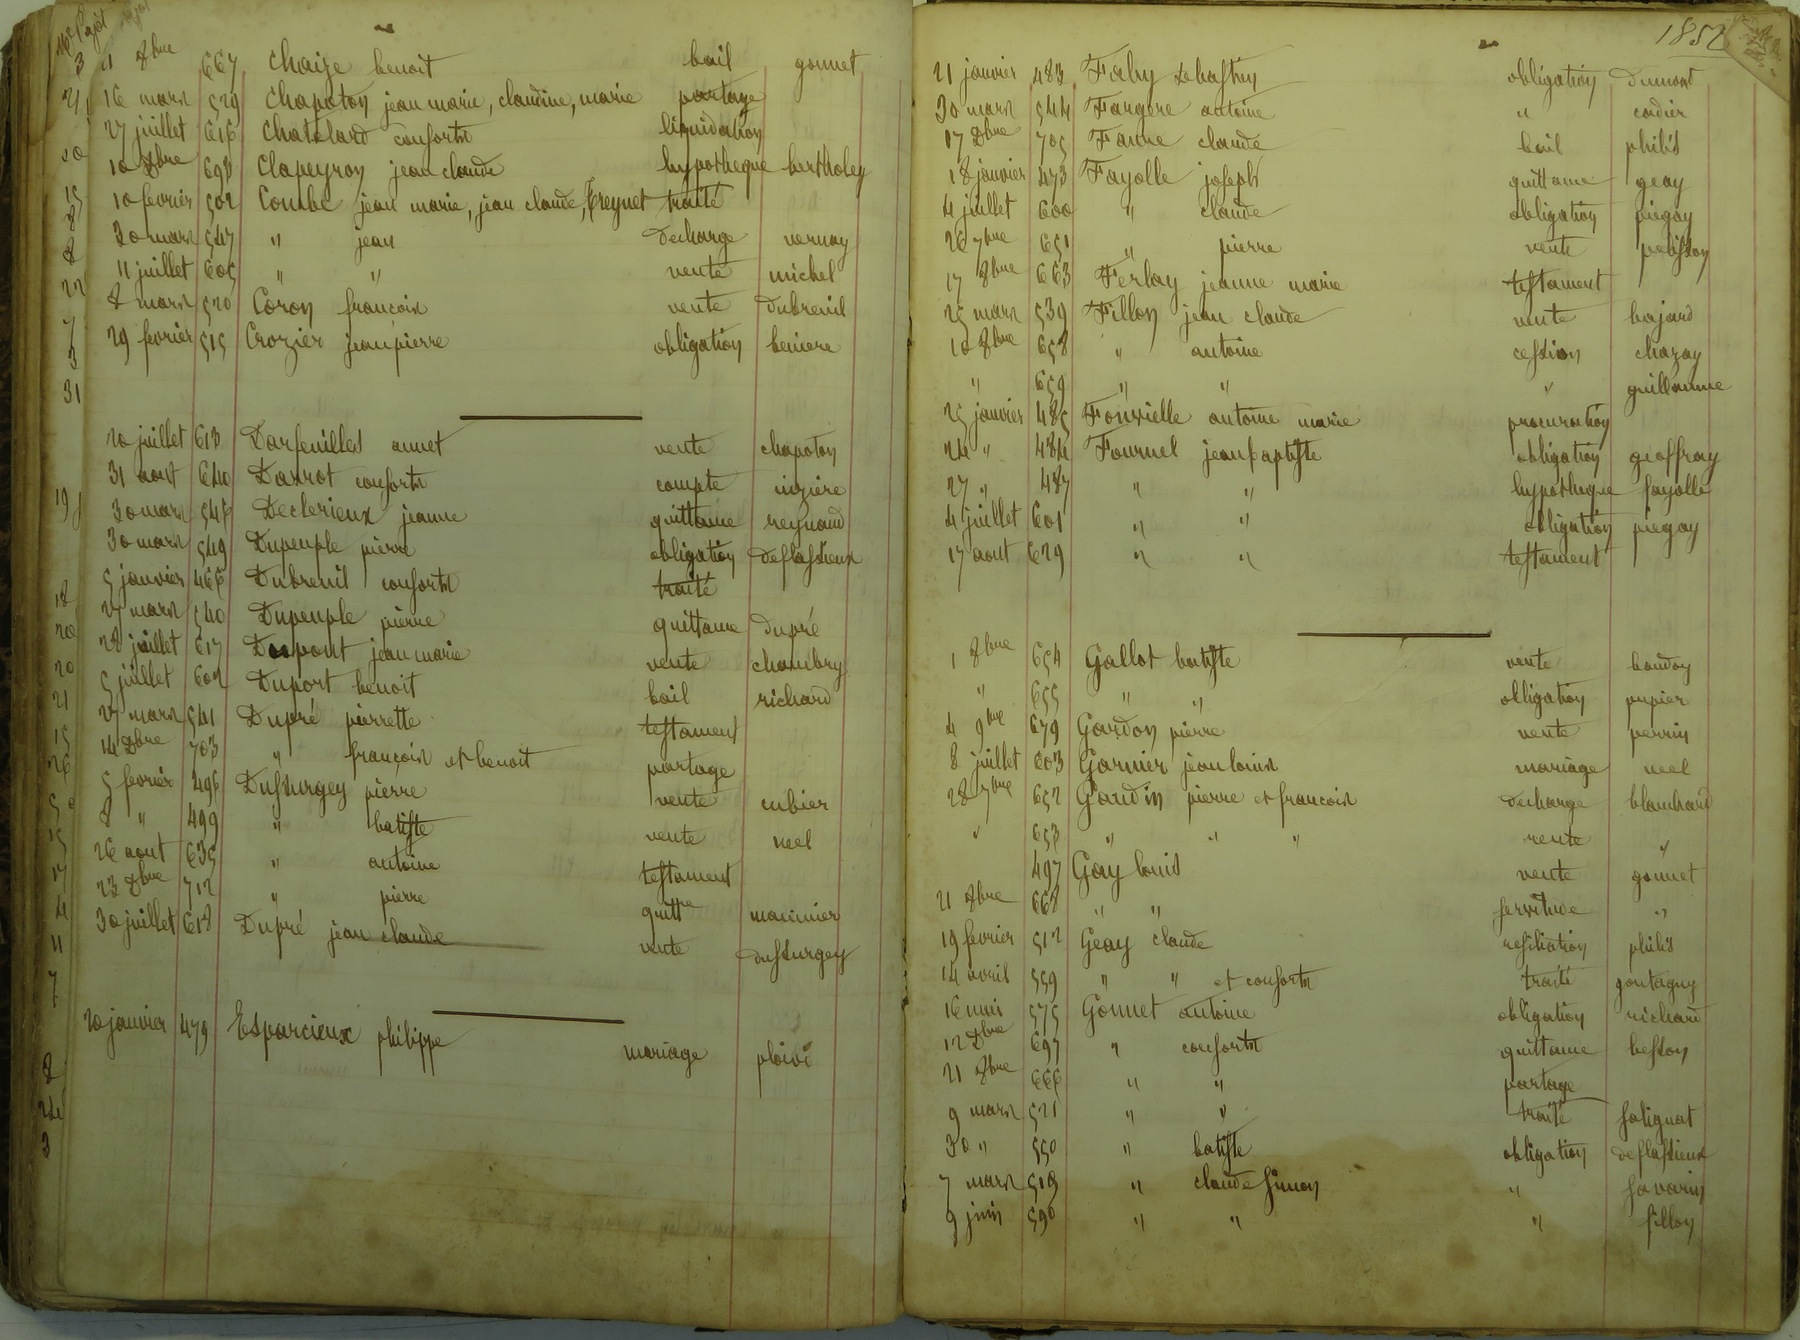 1 8bre 667 Chaize benoit bail gonnet
16 mars 529 Chapoton jean marie, claudine, marie partage
27 juillet 616 Chatelard consorts liquidation
10 Xbre 693 Clapeyron jean claude hypotheque bertholey
10 fevrier 502 Combe jean marie, jean claude, Freynet traité
30 mars 547 " jean decharge vernay
11 juillet 605 " " vente michel
8 mars 520 Coron francois vente dubreuil
29 fevrier 515 Crozier jean pierre obligation beniere
20 juillet 613 Darfeuilles annet vente chapoton
31 aout 640 Darrot consorts compte
30 mars 548 Declerieux jeanne quittance reynaud
30 mars 549 Dupeuple pierre obligation deflassieux
5 janvier 466 Dubreuil consorts traité
27 mars 540 Dupeuple pierre quittance dupré
28 juillet 617 Dupont jean marie vente chambry
5 juillet 602 Duport benoit bail richard
27 mars 541 Dupré pierrette testament
14 Xbre 703 " françois et benoit partage
5 fevrier 496 Dussurgey pierre vente cubier
8 " 499 " batiste vente neel
26 aout 635 " antoine testament
23 Xbre 712 " pierre quitt
30 juillet 618 Dupré jean claude vente dussurgey
20 janvier 479 Esparcieux philippe mariage
1852
21 janvier 483 Fabry sebastien obligation dumont
30 mars 544 Fargere antoine " cordier
17 Xbre 705 Faure claude bail philis
18 janvier 473 Fayolle joseph quittance geay
4 juillet 600 " claude obligation piegay
26 7bre 651 " pierre vente pelisson
17 8bre 663 Ferlay jeanne marie testament
25 mars 539 Fillon jean claude vente bajard
10 8bre 658 " antoine cession chazay
" 659 " " " guillaume
25 janvier 485 antoine marie procuration
24 " 484 Fournel jean baptiste obligation geoffray
27 " 487 " " hypotheque fayolle
4 juillet 601 " " obligation piegay
17 aout 629 " " testament
1 8bre 654 Gallot batiste vente
" 655 " " obligation pupier
4 9bre 679 Gardon pierre vente perrin
8 juillet 603 Garnier jean louis mariage neel
28 7bre 652 Gaudin pierre et francois decharge blanchard
" 653 " " " vente "
497 Gay louis vente gonnet
21 8bre 668 " " servitude "
19 fevrier 512 Geay claude resiliation philis
14 avril 559 " " et consorts traité goutagny
16 mai 575 Gonnet antoine obligation richard
12 Xbre 697 " consorts quittance besson
21 8bre 666 " " partage
9 mars 521 " " traité salignat
30 " 550 " batiste obligation deflassieux
7 mars 519 " claude simon " savarin
9 juin 590 " " " fillon